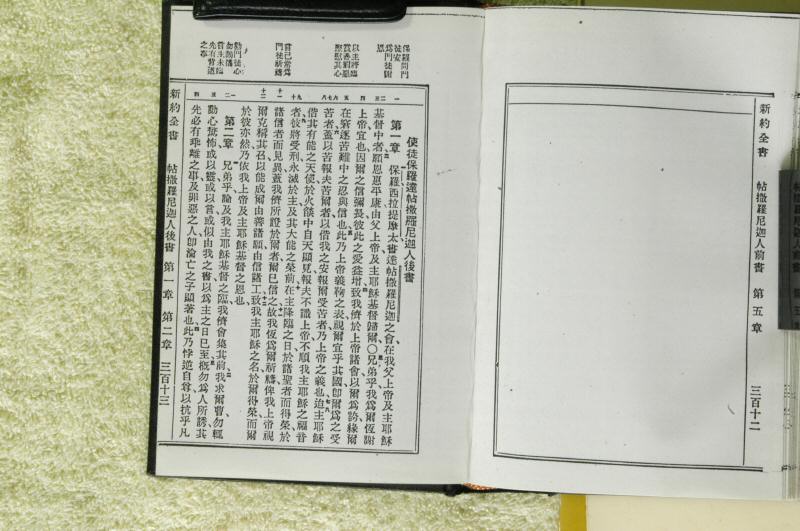 新約全書 帖撒羅尼迦人前書 第五章 三百十二
保羅問門
徒安
爲門徒謝
恩
以主將臨
慰其心
嘗已常爲
門徒祈禱
勸門徒心
勿驚惶
言主未臨
先有背道
之事
使徒保羅達帖撒羅尼迦人後書
第一章 保羅西拉提摩太書達帖撒羅尼迦之會在我父上帝及主耶穌
基督中者願恩惠平康由父上帝及主耶穌基督歸爾〇兄弟乎我爲爾恆謝
上帝宜也因爾之信彌長彼此之愛益增致我儕於上帝諸會以爾爲誇緣爾
在窘逐苦難中之忍與信也此乃上帝義鞫之表視爾宜乎其國卽爾爲之受
苦者蓋以苦報夫苦爾者以偕我之安報爾受苦者乃上帝之義也迨主耶穌
偕其有能之天使於火燄中自天顯見報夫不識上帝不順我主耶穌之福音
者彼將受刑永滅於主及其大能之榮前在主降臨之日於諸聖者而得榮於
諸信者而見異蓋我儕所證於爾者爾已信之故我恆爲爾祈禱俾我上帝視
爾克稱其召以能成爾由善諸願由信諸工致我主耶穌之名於爾得榮而爾
於彼亦然乃依我上帝及主耶穌基督之恩也
第二章 兄弟乎論及我主耶穌基督之臨我儕會集其前我求爾曹勿輒
動心驚怖或以靈或以言或似由我之書以爲主之日已至概勿爲人所誘其
先必有乖離之事及罪惡之人卽淪亡之子顯著也此乃悖逆自尊以抗乎凡
新約全書 帖撒羅尼迦人後書 第一章 第二章 三百十三